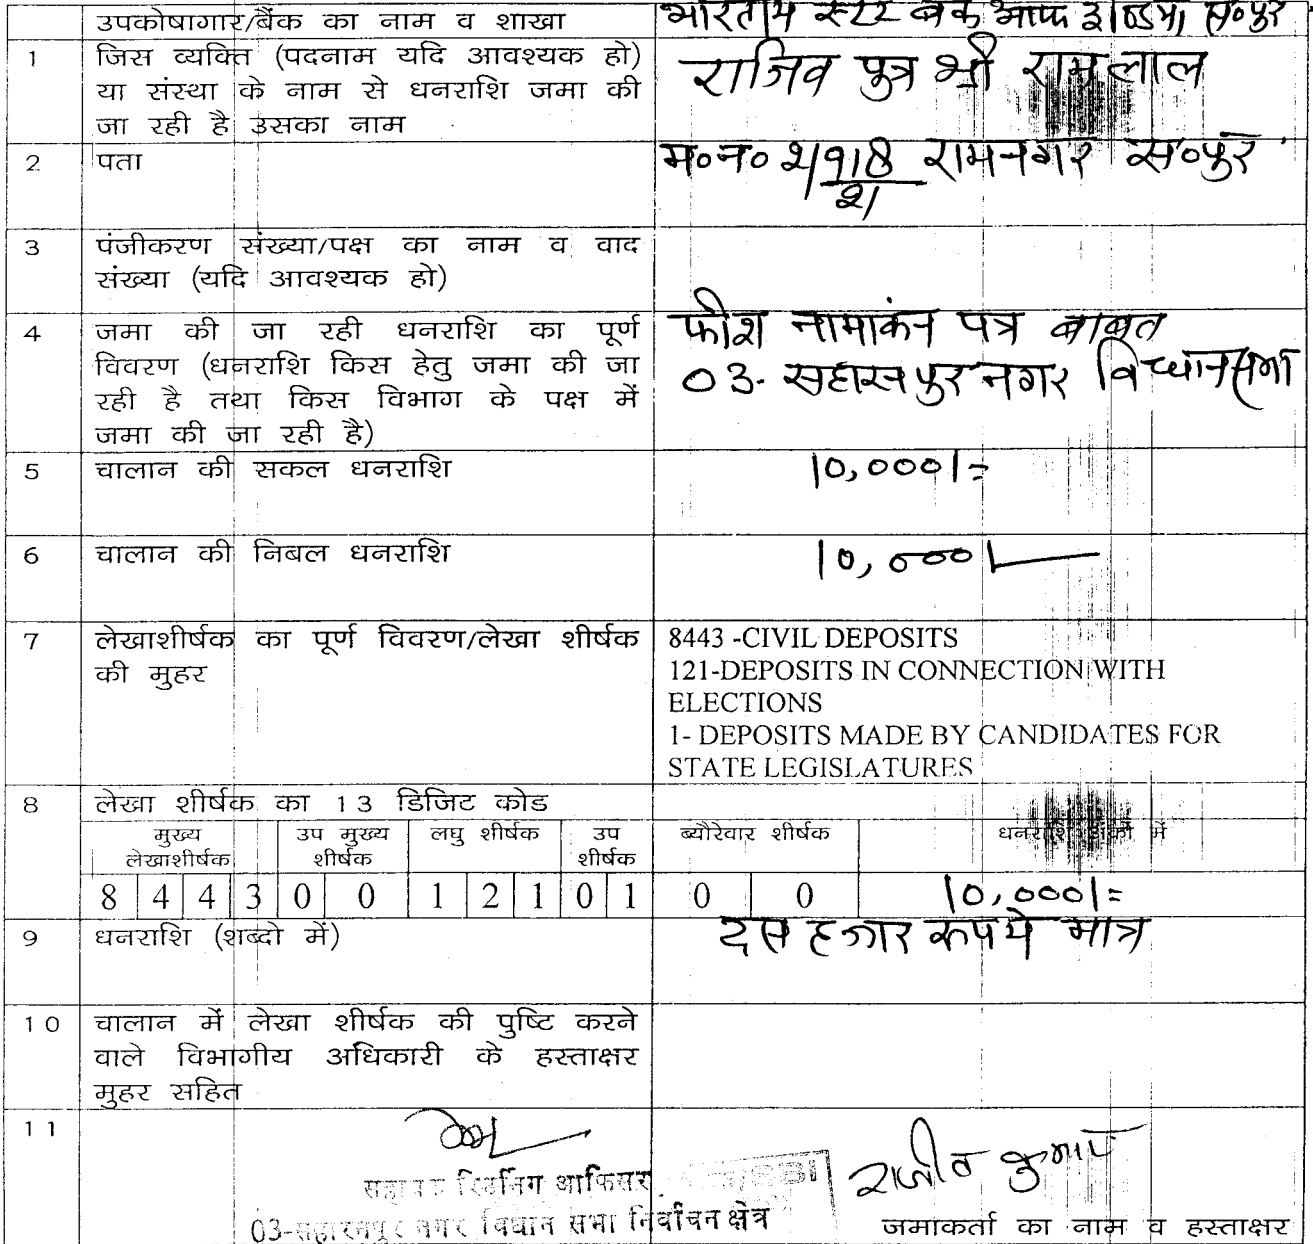 उपकोषागार/बैंक का नाम व शाखा
भारतीय स्टेट बैंक आफ इण्डिया, स०पुर
1 जिस व्यक्ति (पदनाम यदि आवश्यक हो)
या संस्था के नाम से धनराशि जमा की
जा रही है उसका नाम
राजिव पुत्र श्री रामलाल
2 पता
म०न० 2/918/2 रामनगर स०पुर
3 पंजीकरण संख्या/पक्ष का नाम व वाद
संख्या (यदि आवश्यक हो)
4 जमा की जा रही धनराशि का पूर्ण
विवरण (धनराशि किस हेतु जमा की जा
रही है तथा किस विभाग के पक्ष में
जमा की जा रही है)
फीश नामाकंन पत्र बाबत
03- सहासपुर नगर विधानसभा
5 चालान की सकल धनराशि
10,000/=
6 चालान की निबल धनराशि
10,000/-
7 लेखाशीर्षक का पूर्ण विवरण/लेखा शीर्षक
की मुहर
8443 -CIVIL DEPOSITS
121-DEPOSITS IN CONNECTION WITH
ELECTIONS
1- DEPOSITS MADE BY CANDIDATES FOR
STATE LEGISLATURES
8 लेखा शीर्षक का 13 डिजिट कोड
मुख्य लेखाशीर्षक उप मुख्य शीर्षक लघु शीर्षक उप शीर्षक ब्यौरेवार शीर्षक धनराशि अंकों में
8 4 4 3 0 0 1 2 1 0 1 0 0 10,000/=
9 धनराशि (शब्दो में)
दस हजार रूपये मात्र
10 चालान में लेखा शीर्षक की पुष्टि करने
वाले विभागीय अधिकारी के हस्ताक्षर
मुहर सहित
11
सहायक रिटर्निंग आफिसर
03-सहारनपुर नगर विधान सभा निर्वाचन क्षेत्र
SBI
राजीव कुमार
जमाकर्ता का नाम व हस्ताक्षर